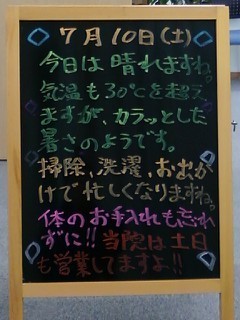 7月10日(土)
今日は晴れますね。
気温も30℃を超え
ますが、カラッとした
暑さのようです。
掃除、洗濯、お出か
けで忙しくなりますね。
体のお手入れも忘れ
ずに!!当院は土日
も営業してますよ!!